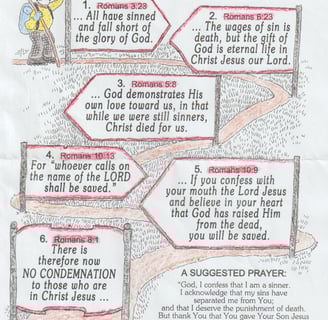 1. Romans 3:23
... All have sinned
and fall short of
the glory of God.
2. Romans 6:23
... The wages of sin is
death, but the gift of
God is eternal life in
Christ Jesus our Lord.
3. Romans 5:8
... God demonstrates His
own love toward us, in that
while we were still sinners,
Christ died for us.
4. Romans 10:13
For "whoever calls on
the name of the LORD
shall be saved."
5. Romans 10:9
... If you confess with
your mouth the Lord Jesus
and believe in your heart
that God has raised Him
from the dead,
you will be saved.
6. Romans 8:1
There is
therefore now
NO CONDEMNATION
to those who are
in Christ Jesus ...
A SUGGESTED PRAYER:
"God, I confess that I am a sinner.
I acknowledge that my sins have
separated me from You;
and that I deserve the punishment of death.
But thank You that You gave Your Son Jesus